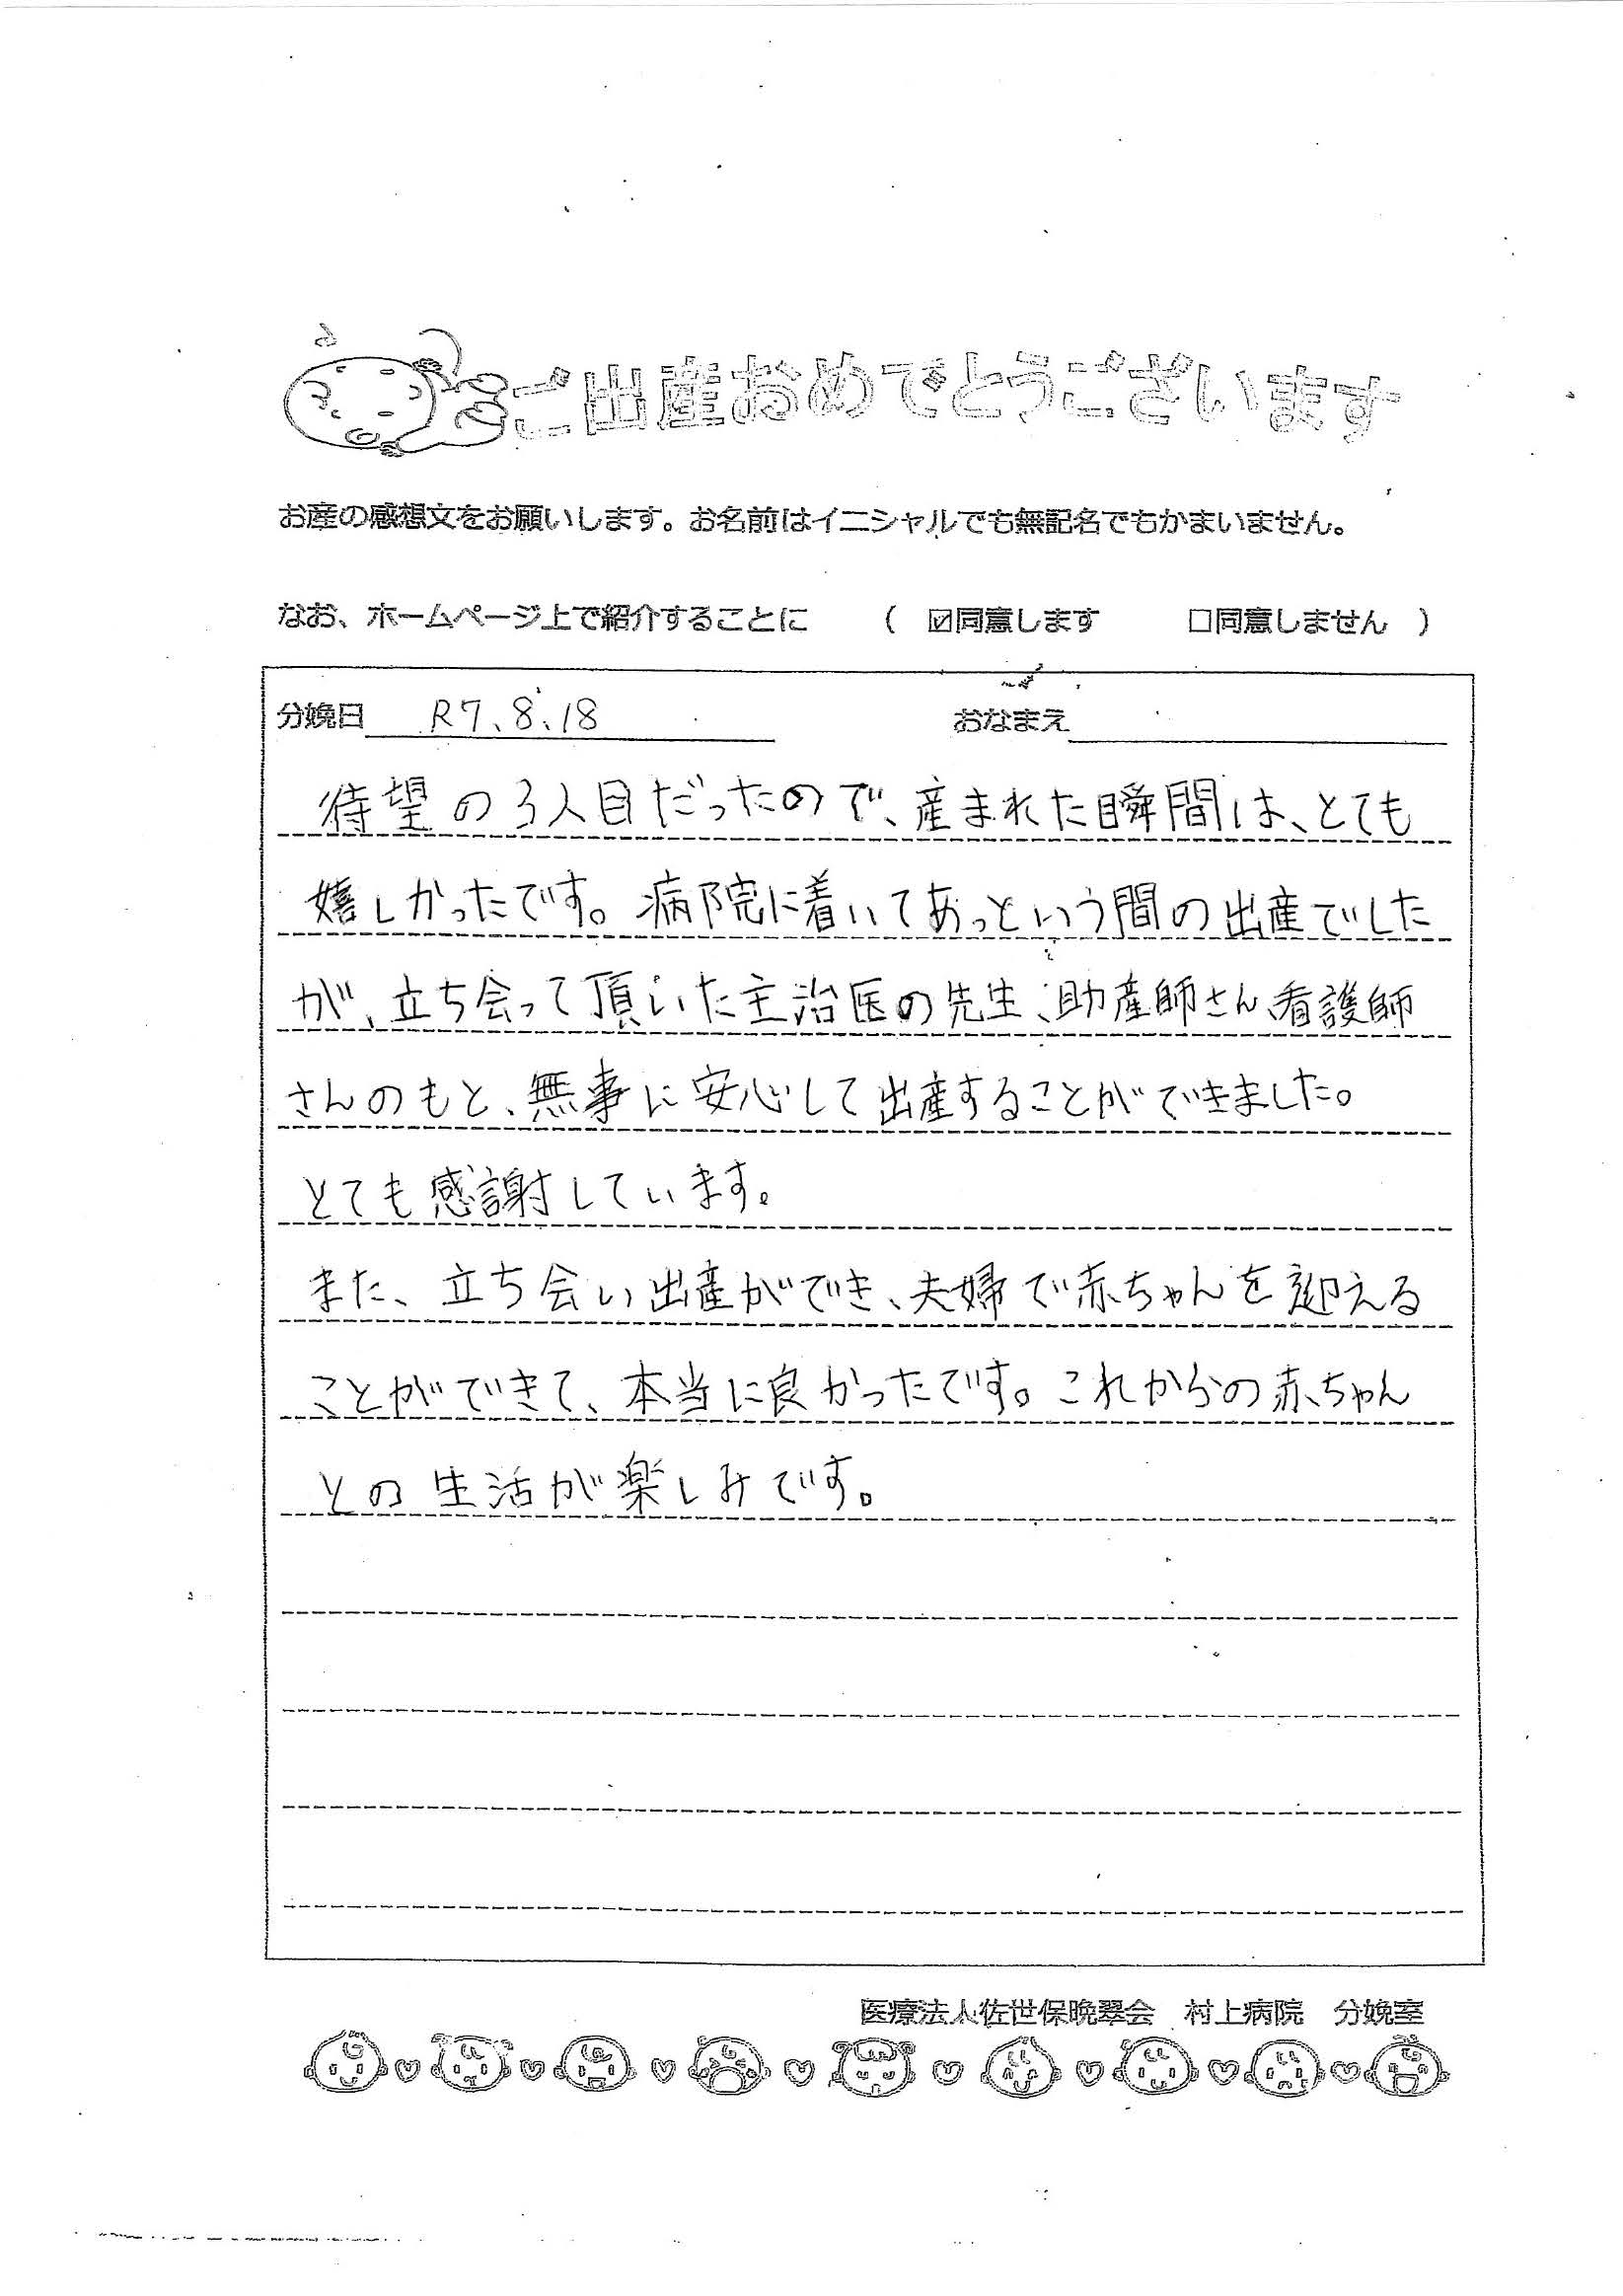 ご出産おめでとうございます
お産の感想文をお願いします。お名前はイニシャルでも無記名でもかまいません。
なお、ホームページ上で紹介することに ( ☑同意します □同意しません )
分娩日 R7.8.18 おなまえ
待望の3人目だったので、産まれた瞬間は、とても
嬉しかったです。病院に着いてあっという間の出産でした
が、立ち会って頂いた主治医の先生、助産師さん、看護師
さんのもと、無事に安心して出産することができました。
とても感謝しています。
また、立ち会い出産ができ、夫婦で赤ちゃんを迎える
ことができて、本当に良かったです。これからの赤ちゃん
との生活が楽しみです。
医療法人佐世保晩翠会 村上病院 分娩室